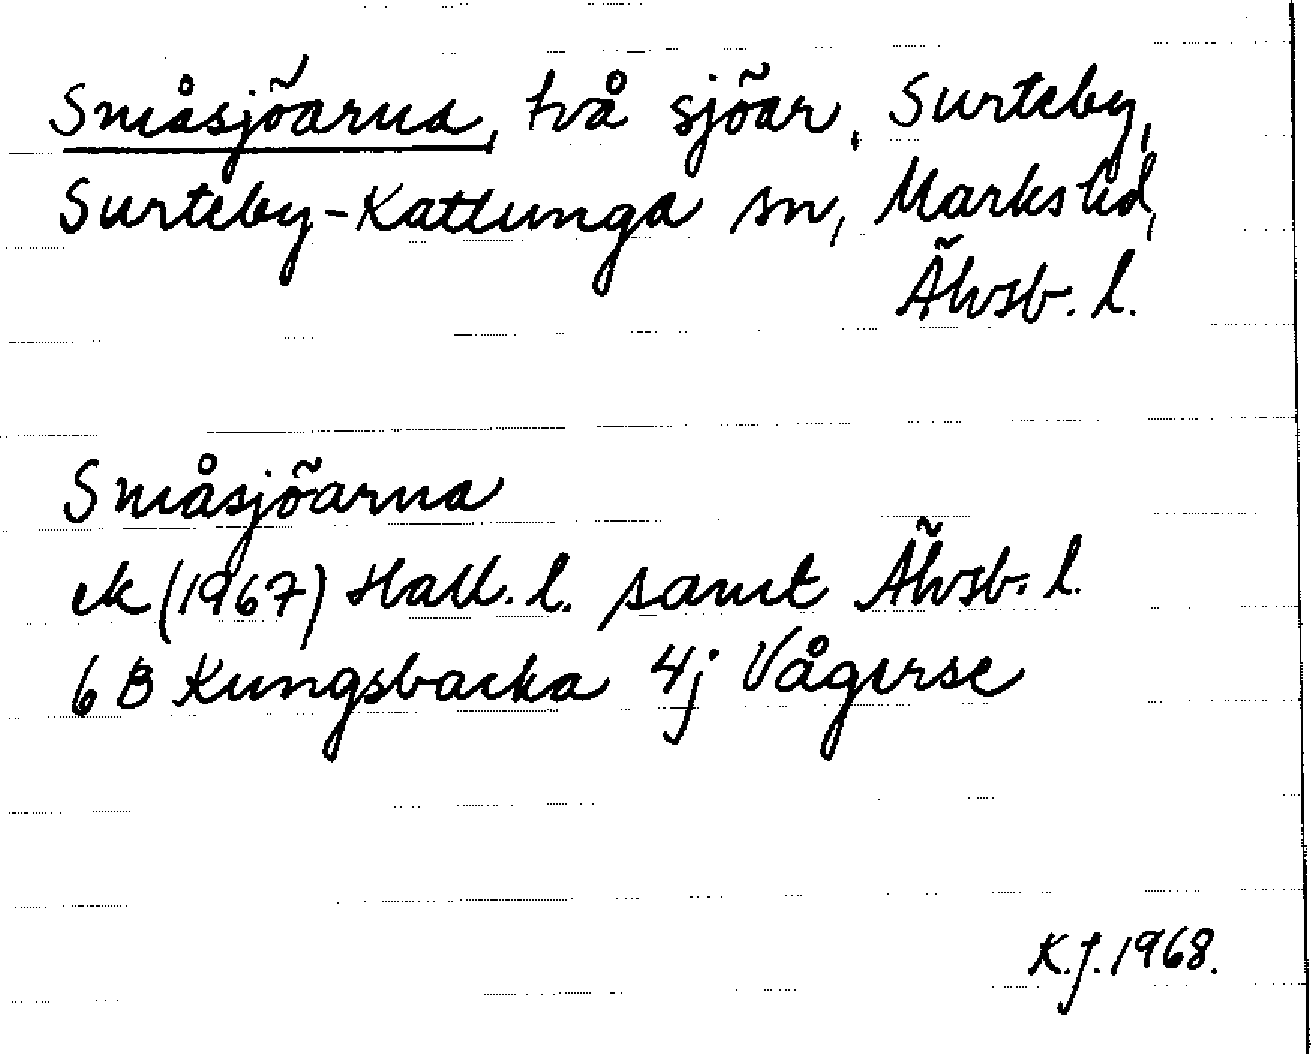 Småsjöarna, två sjöar, Surteby,
Surteby-Kattunga sn, Marks hd,
Älvsb. l.
Småsjöarna
ek (1967) Hall. l. samt Älvsb. l.
6 B Kungsbacka 4j Vågerse
K.J. 1968.